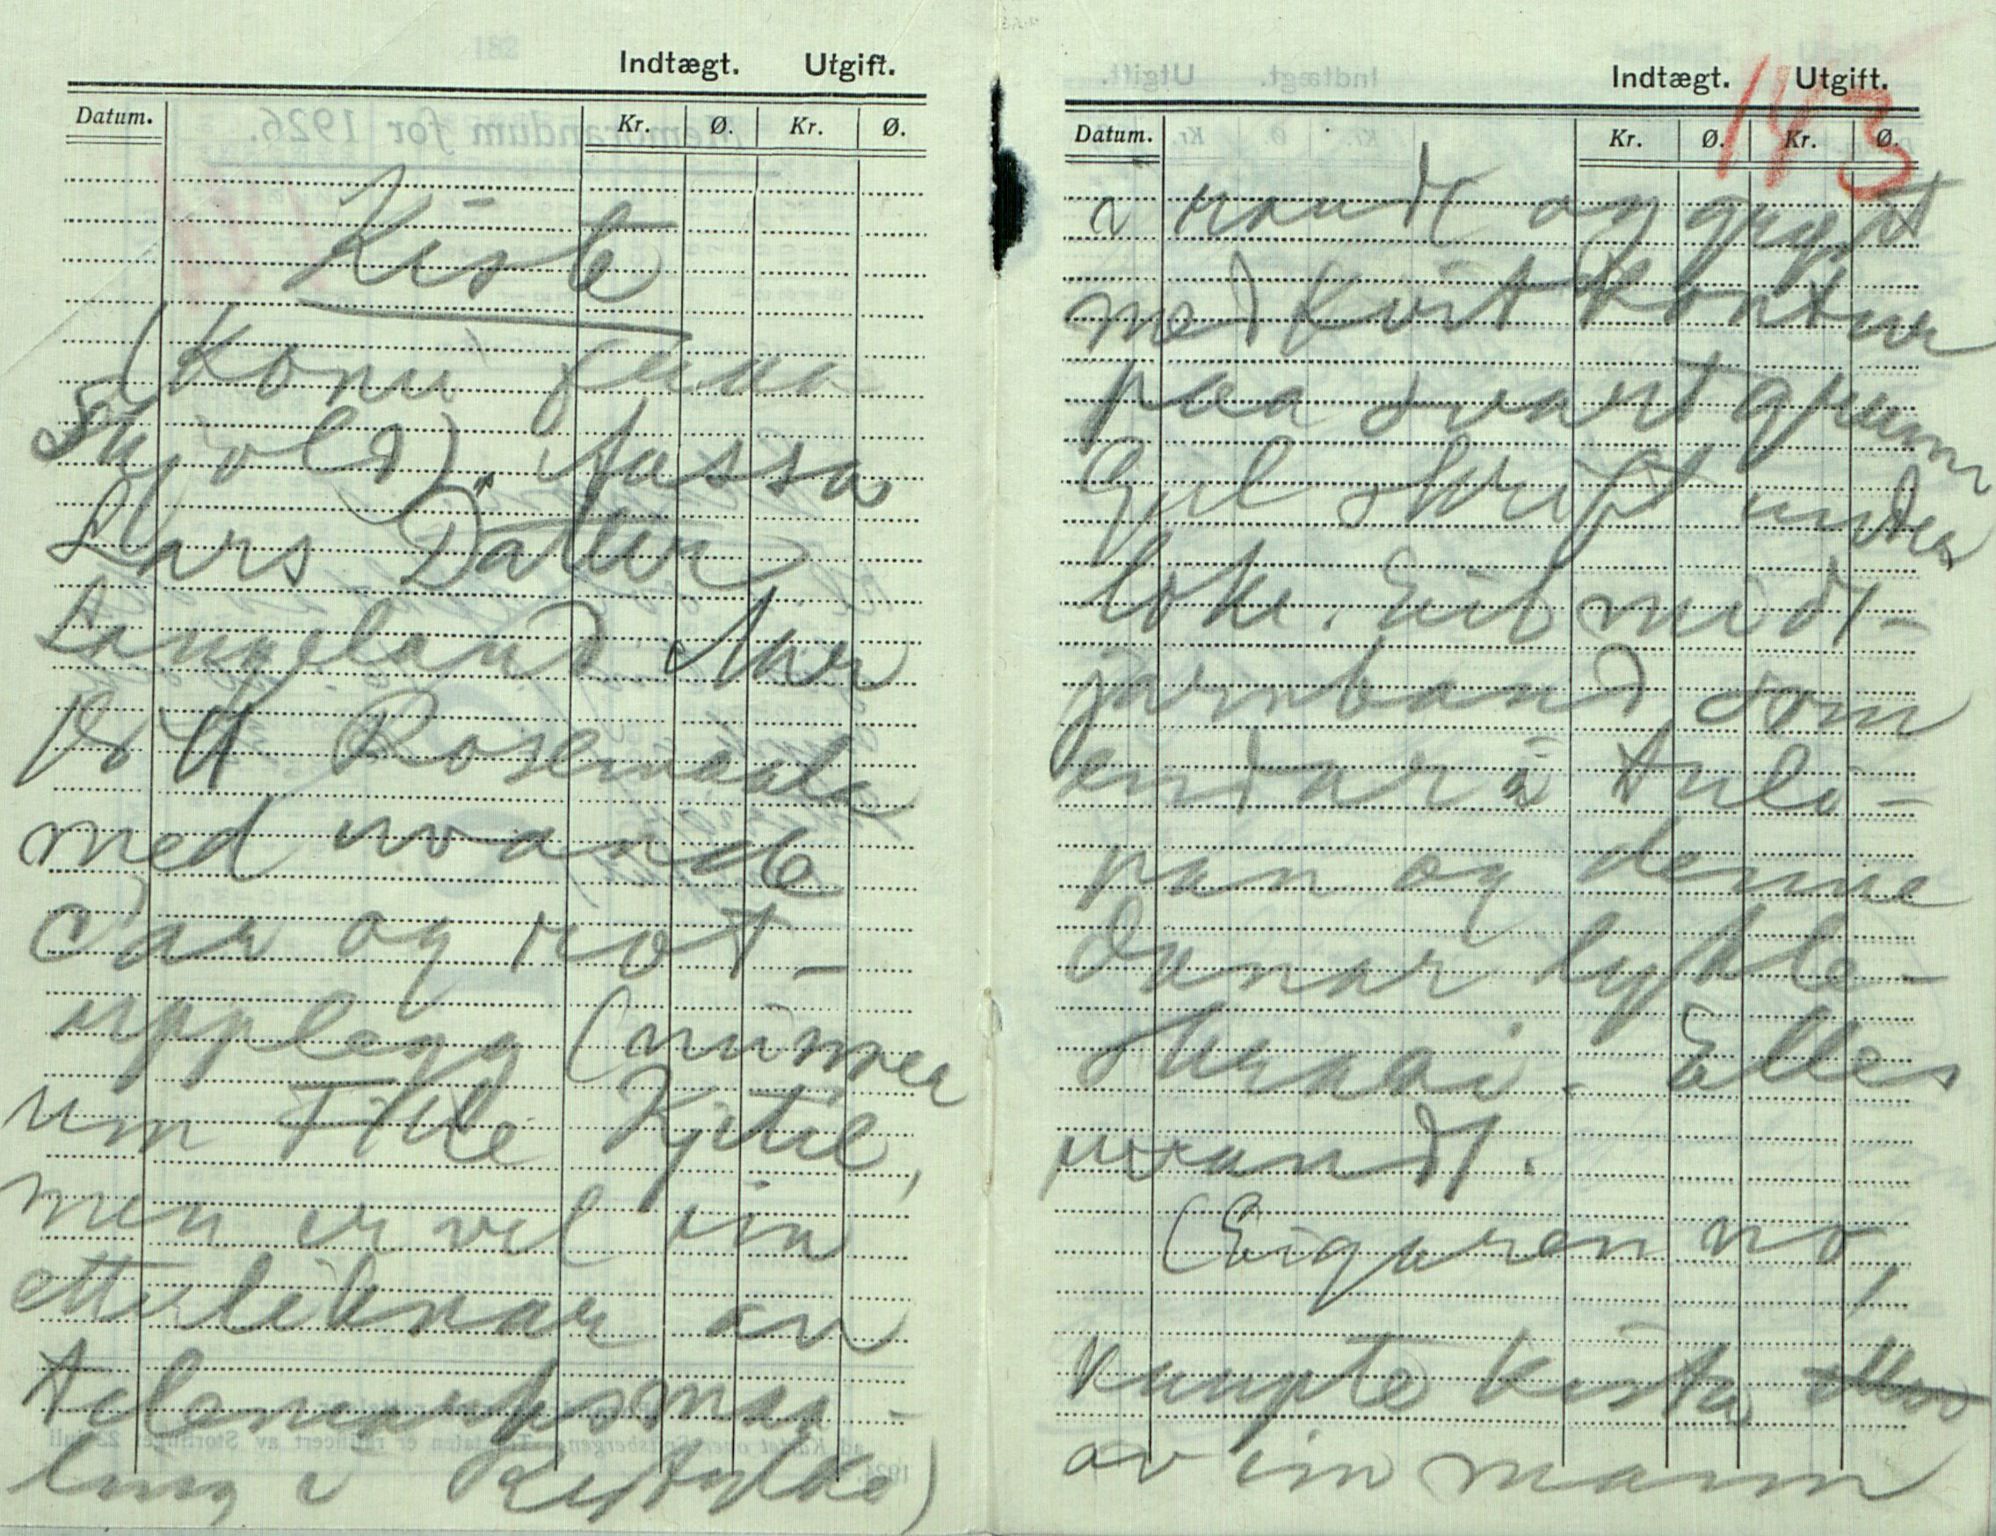 Indtægt. Utgift.
Datum. Kr. Ø. Kr. Ø.
Kiste
(Konu fraa
Skjold). Aassa
Lars Datter
Langeland Aar
1814 Rosemaala
med uvande
Dar og rot-
upplegg (minner
um Tille Kjetil,
men er vel ein
etterliknar av
telemarksmaa-
ling i
Indtægt. Utgift.
143
Datum. Kr. Ø. Kr. Ø.
i raudt og gult
med kvit kontur
paa svart grunn
Gul skrift under
loke. Eit midt-
jarnband som
endar i tuli-
pan og denne
danar lykle-
skraai. Elles
uvandt.
(Eigaren no,
kaupte kista
av ein mann